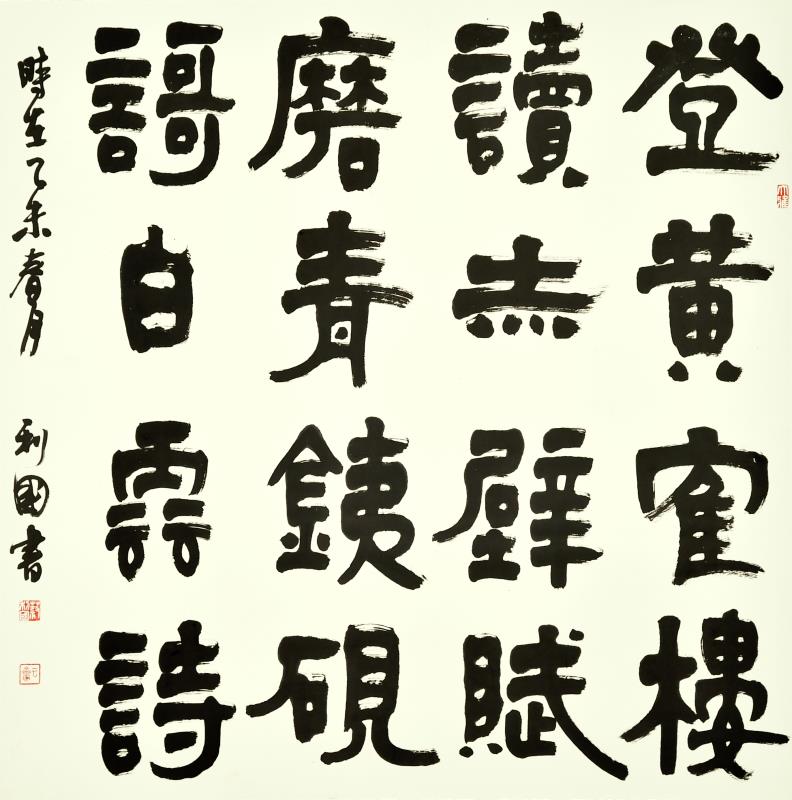 登黄隺樓
讀赤壁賦
磨青銕硯
謌白雲詩
時在乙未春月 利國書